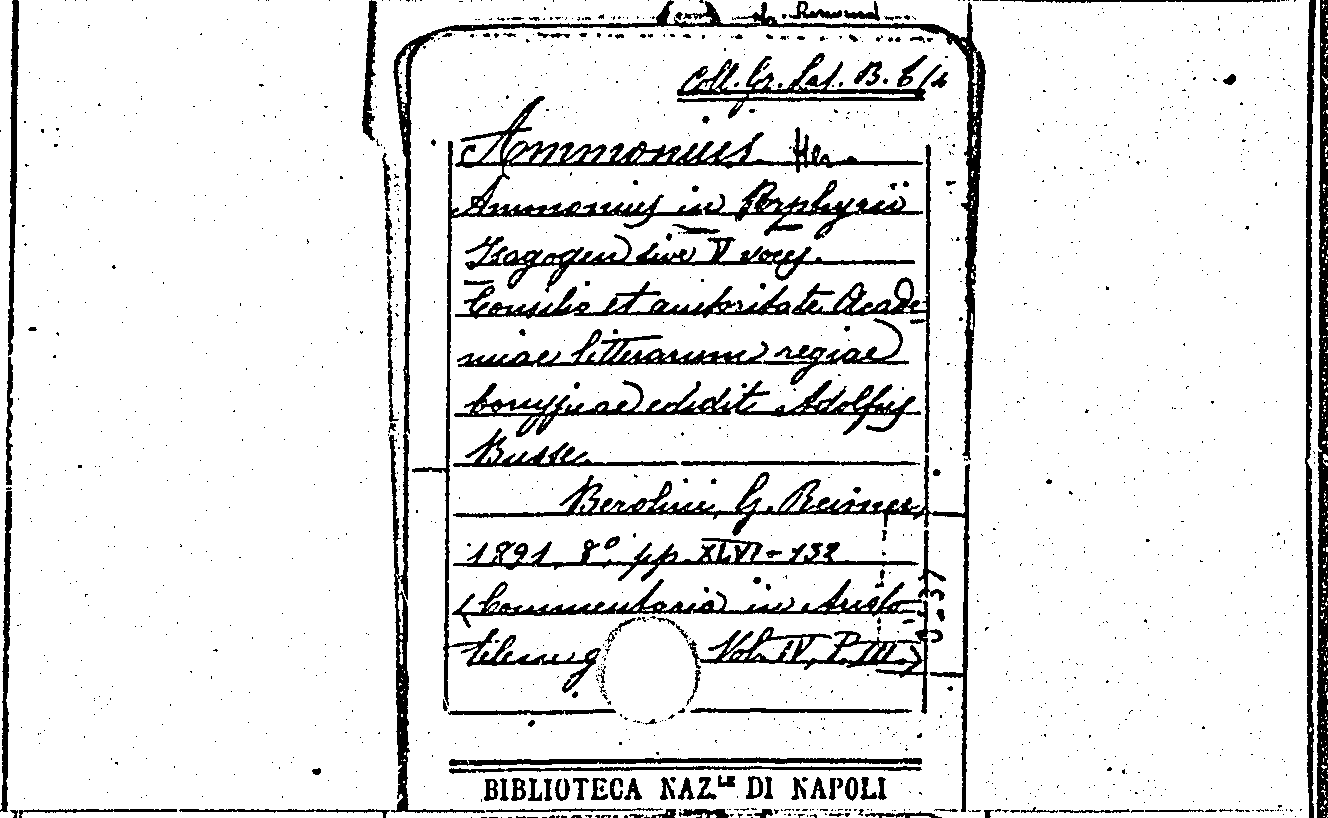 Coll. Gr. Lat. B. 6/4
Ammonius Her.
Ammonius in Porphyrii
Isagogen sive V voces.
Consilio et auctoritate Acade
miae litterarum regiae
borussicae edidit Adolfus
Busse.
Berolini, G. Reimer,
1891, 8° pp. XLVI-132
(Commentaria in Aristo
telem g Vol. IV, P. III.)
BIBLIOTECA NAZ.LE DI NAPOLI